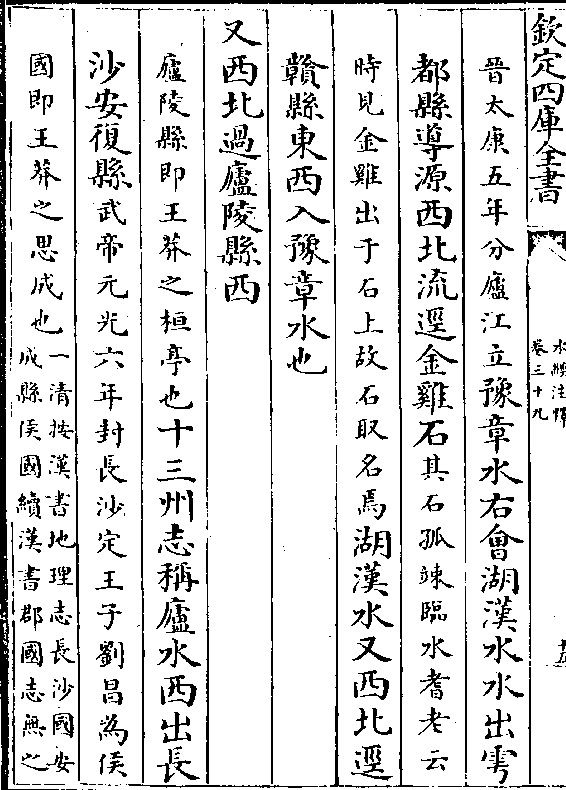 欽定四庫全書
水經注釋
卷三十九
晉太康五年分廬江立豫章水右會湖漢水水出雩
都縣導源西北流逕金雞石其石孤竦臨水耆老云
時見金雞出于石上故石取名焉湖漢水又西北逕
贛縣東西入豫章水也
又西北過廬陵縣西
廬陵縣即王莽之桓亭也十三州志稱廬水西出長
沙安復縣武帝元光六年封長沙定王子劉昌為侯
國即王莽之思成也一清按漢書地理志長沙國安
成縣侯國續漢書郡國志無之